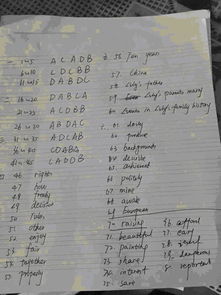 1~5 ACADB
6~10 CDCBB
11~15 DABDC
16~20 DABCA
21~25 CBDBA
26~30 ABDAC
31~35 ADCAB
36~40 CDABA
41~45 CADDB
46 rights
47 fair
48 ready
49 decided
50 rules
51 other
52 enjoy
53 fair
54 together
55 properly
56 Ten years
57. China
58 Lily's father
59 Lily's parents marry
60 Events in Lily's family history
61 deeply
62 produce
63 backgrounds
64 decide
65 achievement
66 politely
67 mine
68 awake
69 European
70 raising
71 beautiful
72 painting
73 share
74 interest
75 save
76 afford
77 east
78
79 lanterns
80 reported